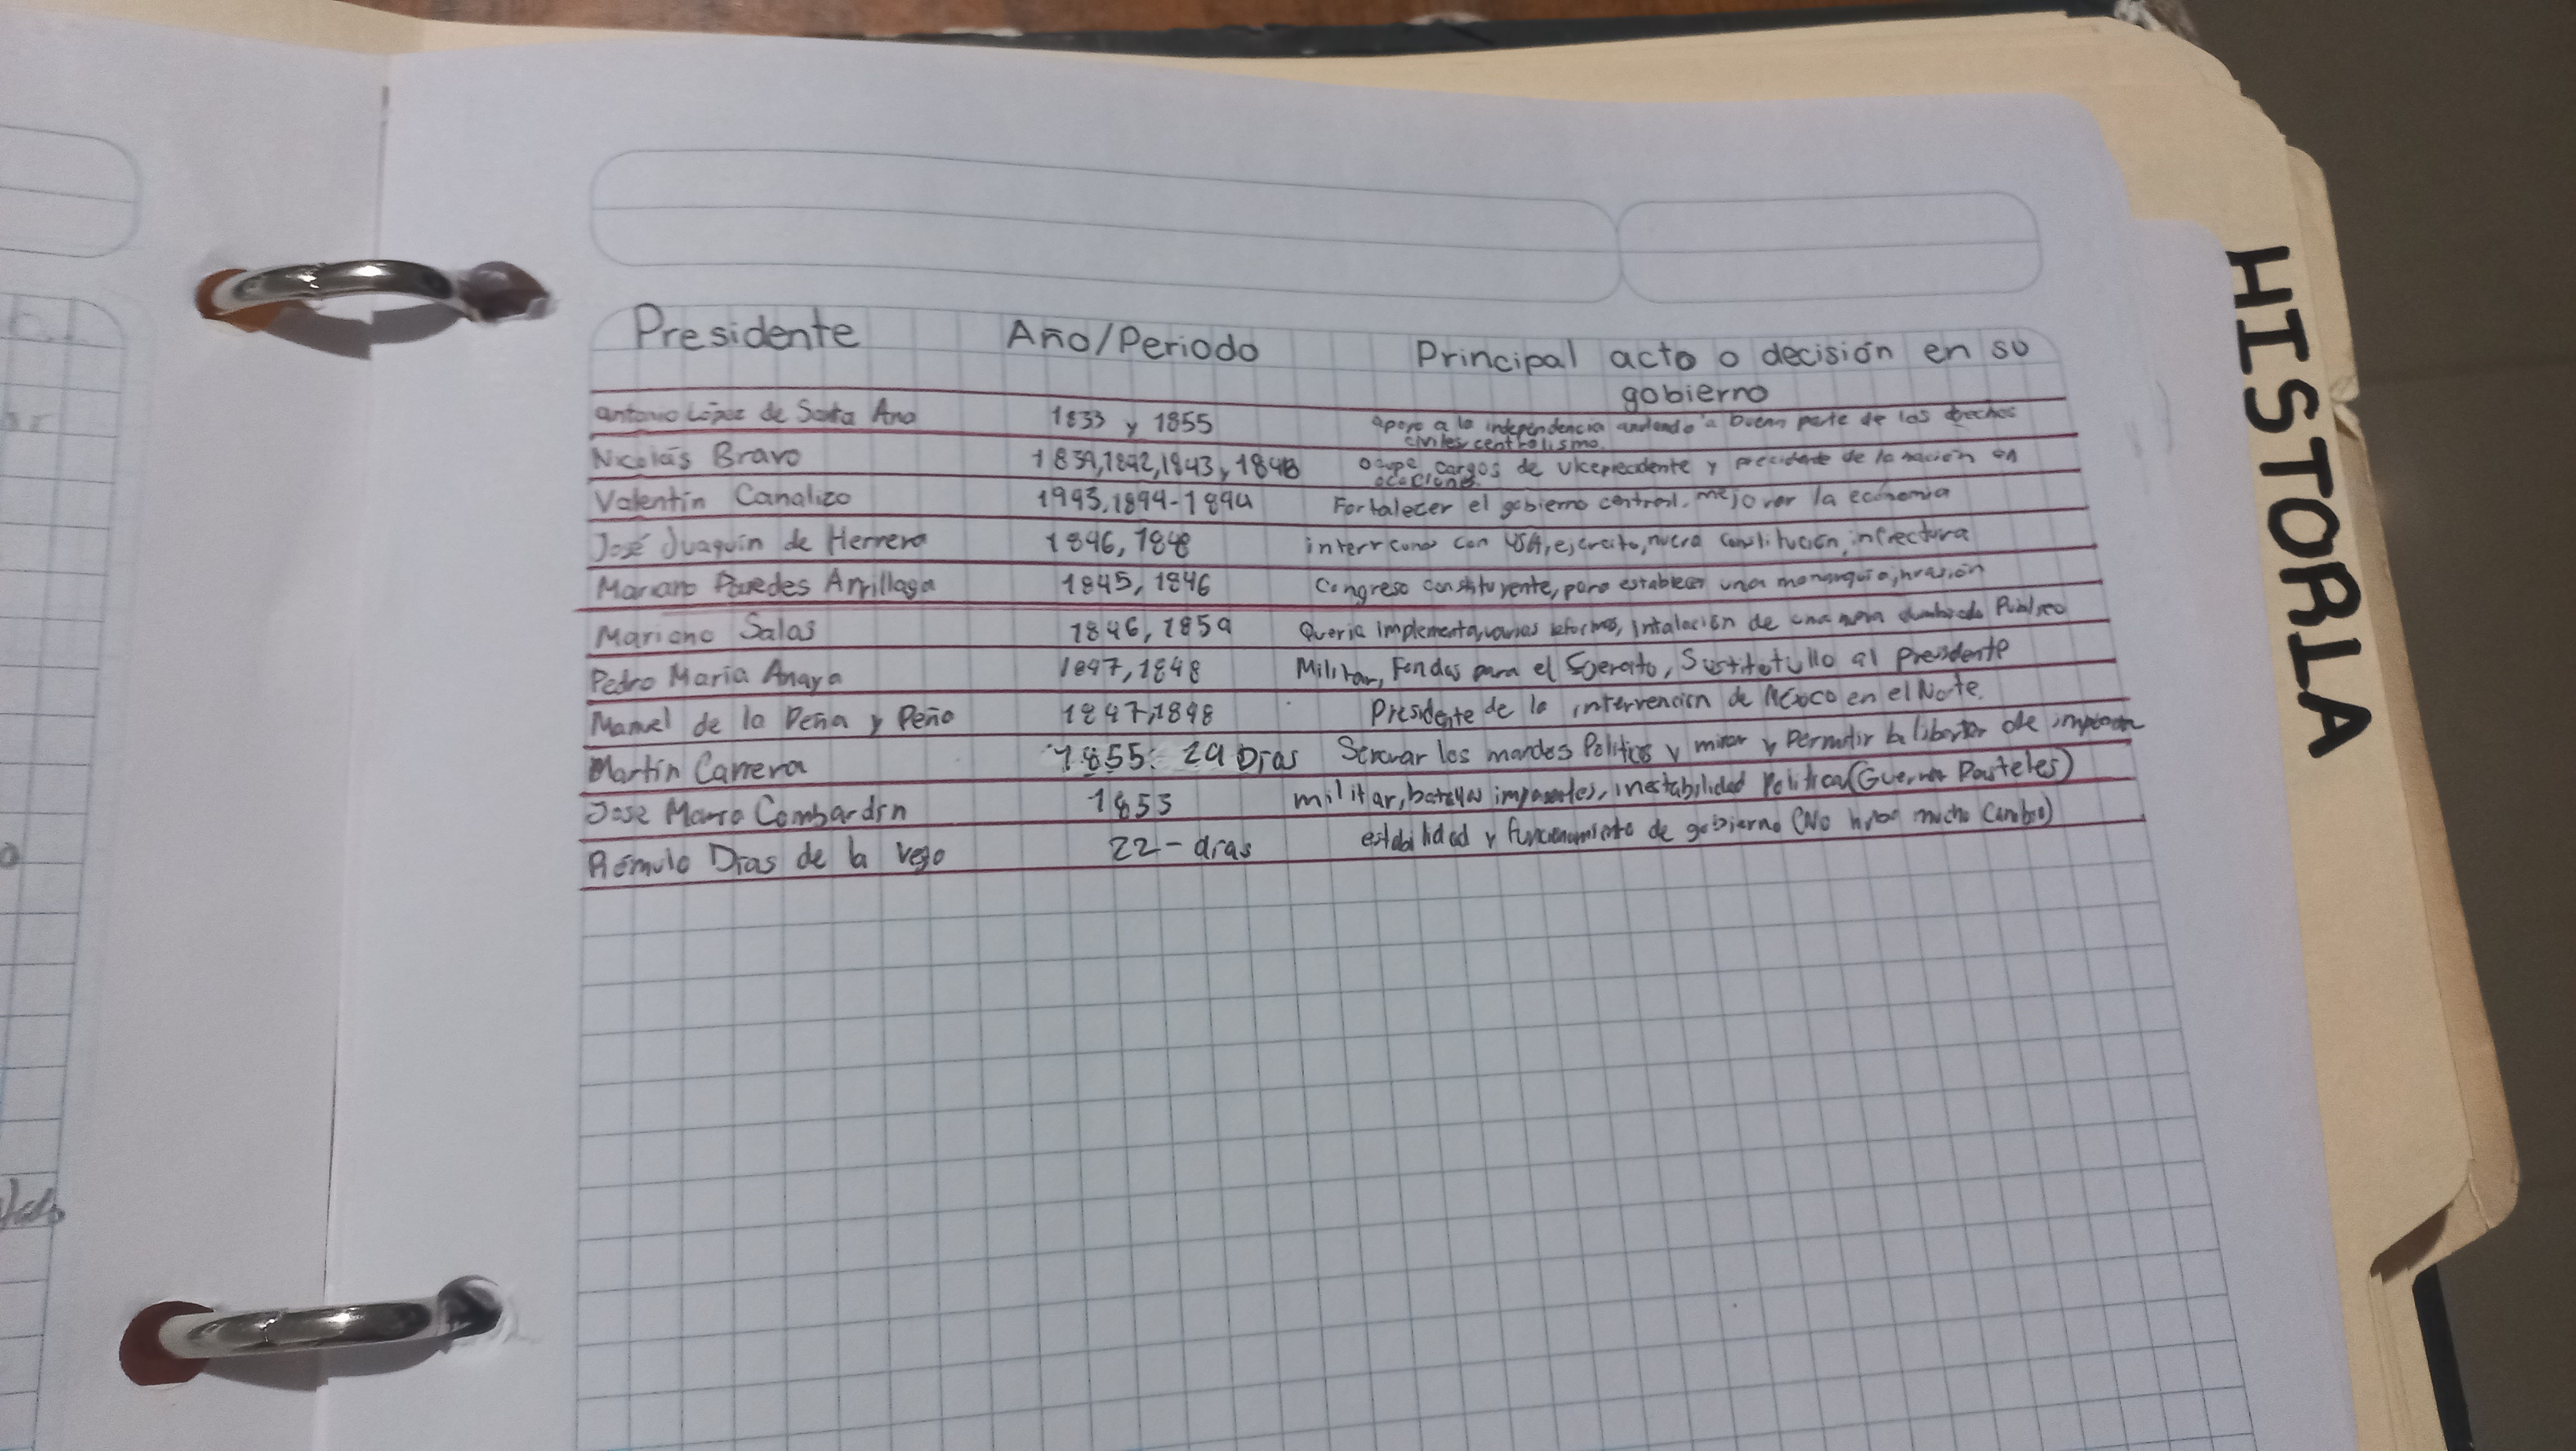 Presidente Año/Periodo Principal acto o decisión en su
gobierno
Antonio López de Santa Ana 1833 y 1855 apoyo a la independencia a buena parte de los
civiles centralismo.
Nicolás Bravo 1839,1842,1843 y 1848 ocupo cargos de viceprecidente y de la nación en
ocaciones
Valentín Canalizo 1943,1844-1844 Fortalecer el gobierno central. mejorar la economia
José Juaquín de Herrera 1846, 1848 con USA, ejercito, nueva constitución,
Mariano Paredes Arrillaga 1845, 1846 Congreso constituyente, para establecer una monarquia, invasión
Mariano Salas 1846, 1859 Queria implementa, varias reformas, intalación de una Publico
Pedro María Anaya 1847, 1848 Militar, Fondos para el Ejercito, al presidente
Manuel de la Peña y Peña 1847,1848 Presidente de la intervencion de México en el Norte.
Martín Carrera 1855: 29 Dias los mandos Politicos y y Permitir la de
José Maria Lombardin 1853 militar, inestabilidad Politica (Guerra Pasteles)
Rómulo Dias de la Vega 22-dias estabilidad y funcionamiento de gobierno (No mucho cambio)
HISTORIA